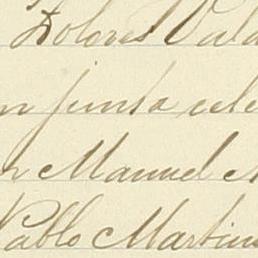 Dolores Vald
n junta cele
n Manuel M
Pablo Martin